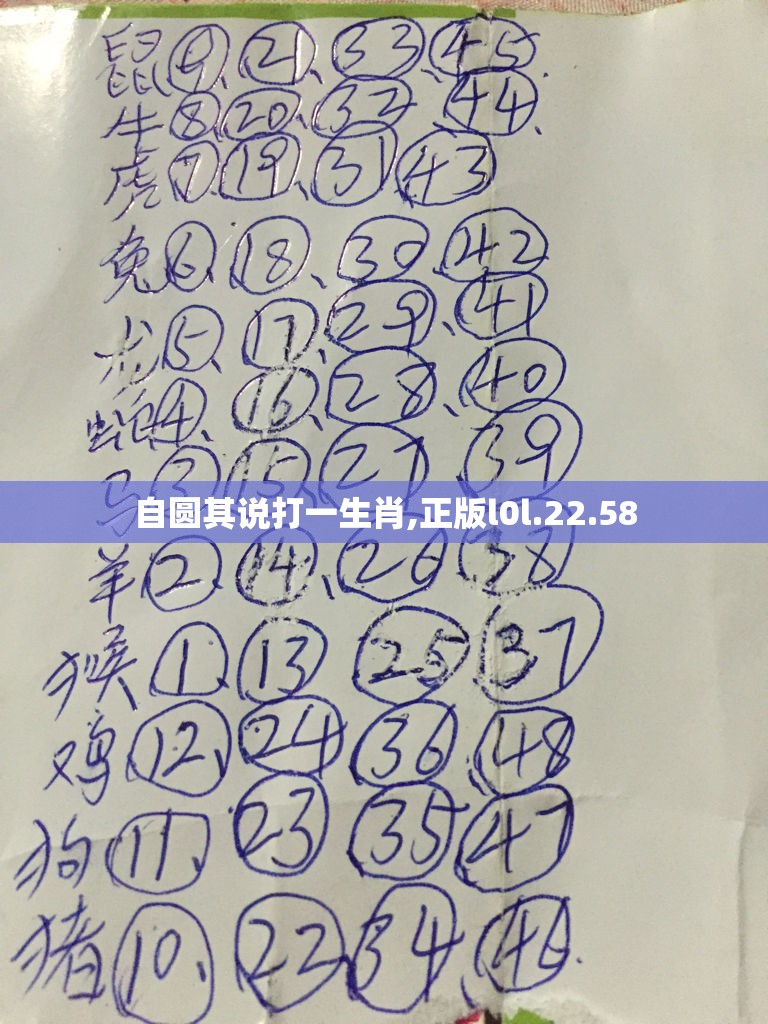 鼠⑨、㉑、㉝、㊺.
牛⑧、⑳、㉜、㊹、
虎⑦、⑲、㉛、㊸、
兔⑥、⑱、㉚、㊷
龙⑤、⑰、㉙、㊶
蛇④、⑯、㉘、㊵
马③、⑮、㉗、㊴
自圆其说打一生肖,正版l0l.22.58
羊②、⑭、㉖、㊳
猴①、⑬、㉕、㊲
鸡⑫、㉔、㊱、㊽
狗⑪、㉓、㉟、㊼
猪⑩、㉒、㉞、㊻.